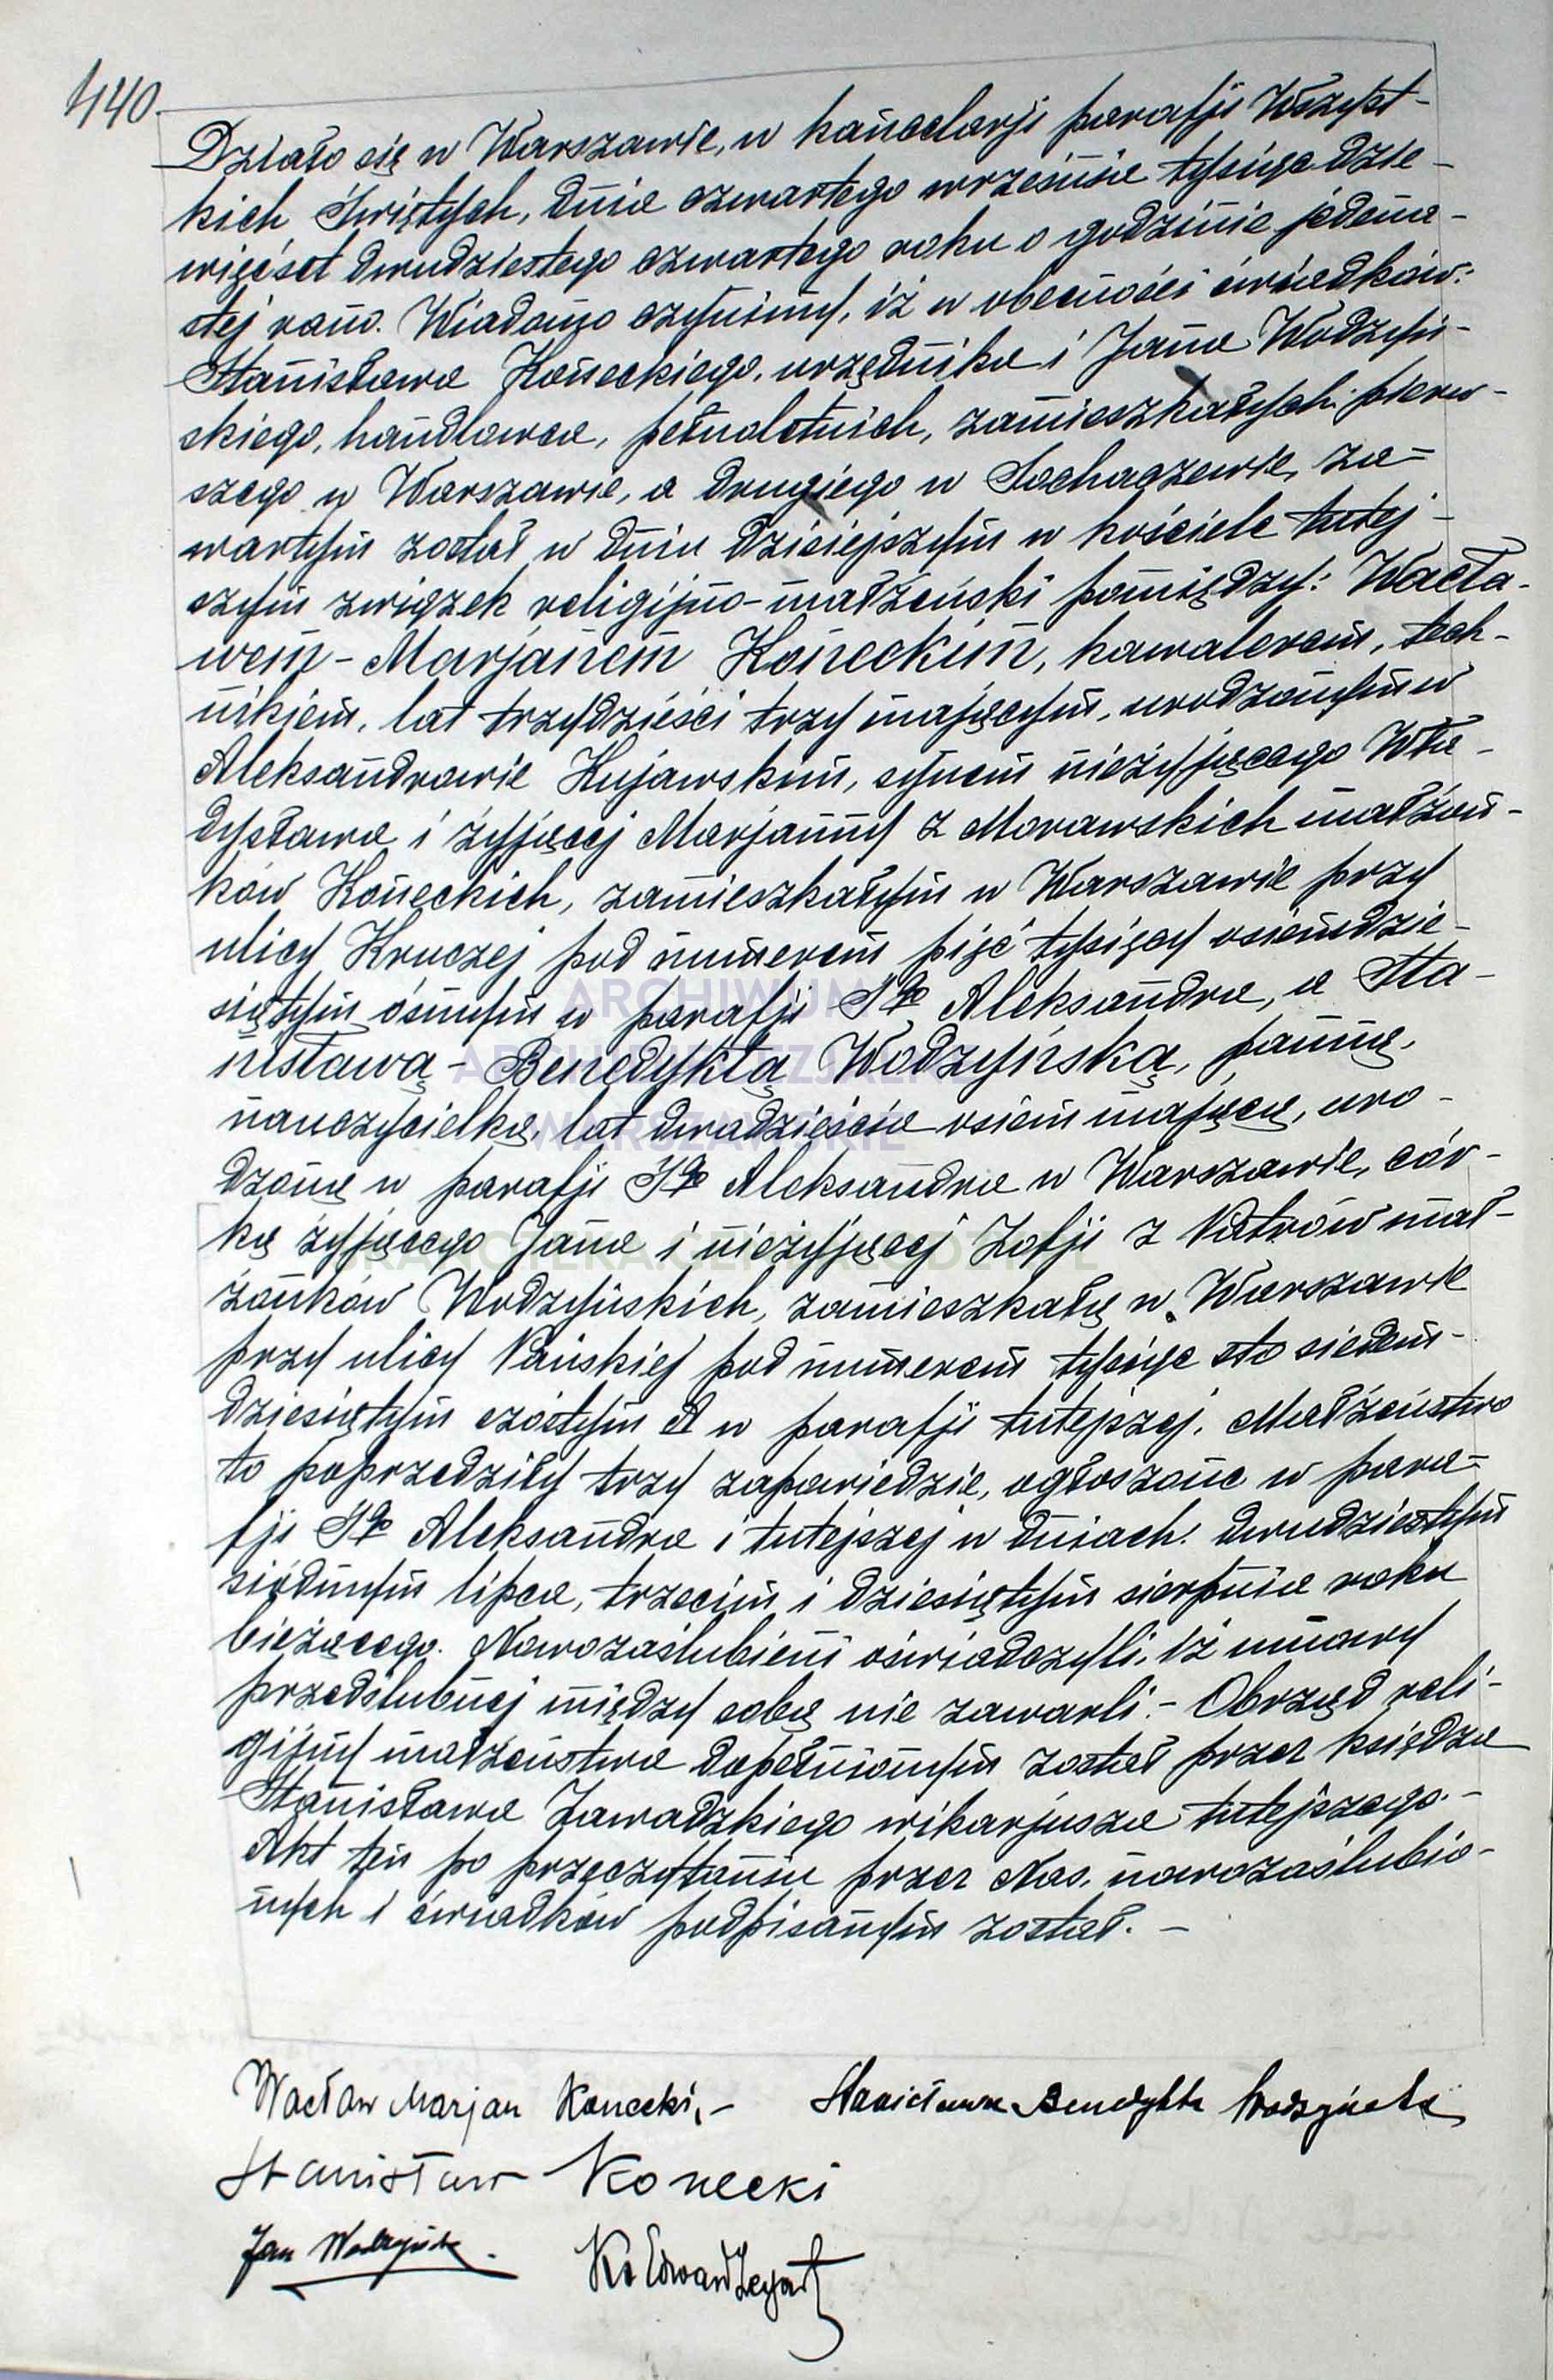 440.
Działo się w Warszawie, w kancelarji parafji Wszyst-
kich Świętych, dnia czwartego września tysiąc dzie-
więćset dwudziestego czwartego roku o godzinie jedena-
stej rano. Wiadomo czynimy, iż w obecności świadków:
Stanisława Koneckiego, urzędnika i Jana Wodzyń-
skiego, handlowca, pełnoletnich, zamieszkałych: pierw-
szego w Warszawie, a drugiego w Sochaczewie, za-
wartym został w dniu dzisiejszym w kościele tutej-
szym związek religijno-małżeński pomiędzy: Wacła-
wem-Marjanem Koneckim, kawalerem, tech-
nikiem, lat trzydzieści trzy mającym, urodzonym w
Aleksandrowie Kujawskim, synem nieżyjącego Wła-
dysława i żyjącej Marjanny z Morawskich małżon-
ków Koneckich, zamieszkałym w Warszawie przy
ulicy Kruczej pod numerem pięć tysięcy osiemdzie-
siątym ósmym w parafji Sgo Aleksandra, a Sta-
nisławą-Benedyktą Wodzyńską, panną,
nauczycielką, lat dwadzieścia osiem mającą, uro-
dzoną w parafji Sgo Aleksandra w Warszawie, cór-
ką żyjącego Jana i nieżyjącej Zofji z Patrów mał-
żonków Wodzyńskich, zamieszkałą w Warszawie
przy ulicy Pańskiej pod numerem tysiąc sto siedem-
dziesiątym szóstym A w parafji tutejszej. Małżeństwo
to poprzedziły trzy zapowiedzie, ogłoszone w para-
fji Sgo Aleksandra i tutejszej w dniach: dwudziestym
siódmym lipca, trzecim i dziesiątym sierpnia roku
bieżącego. Nowozaślubieni oświadczyli, iż umowy
przedślubnej między sobą nie zawarli.- Obrzęd reli-
gijny małżeństwa dopełnionym został przez księdza
Stanisława Zawadzkiego wikarjusza tutejszego.-
Akt ten po przeczytaniu przez Nas, nowozaślubio-
nych i świadków podpisanym został. -
Wacław Marjan Konecki,- Stanisława Benedykta Wodzyńska
Stanisław Konecki
Jan Wodzyński.
Ks Edward
ARCHIWUM
ARCHIDIECEZJALNE
WARSZAWSKIE